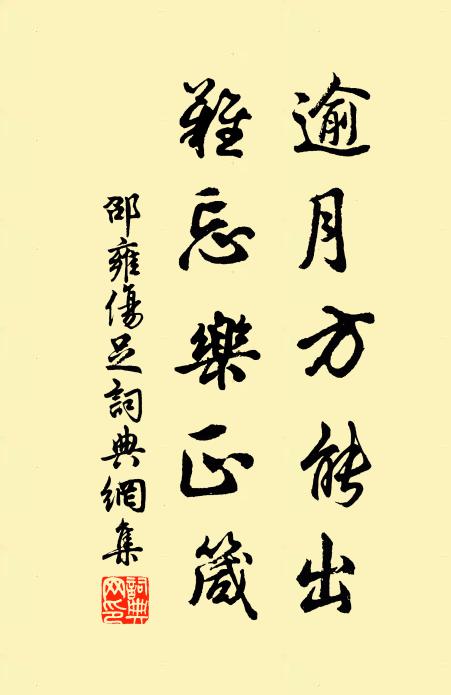 逾月方能出
難忘樂正箴
邵雍傷足詞典網集
詞典網印